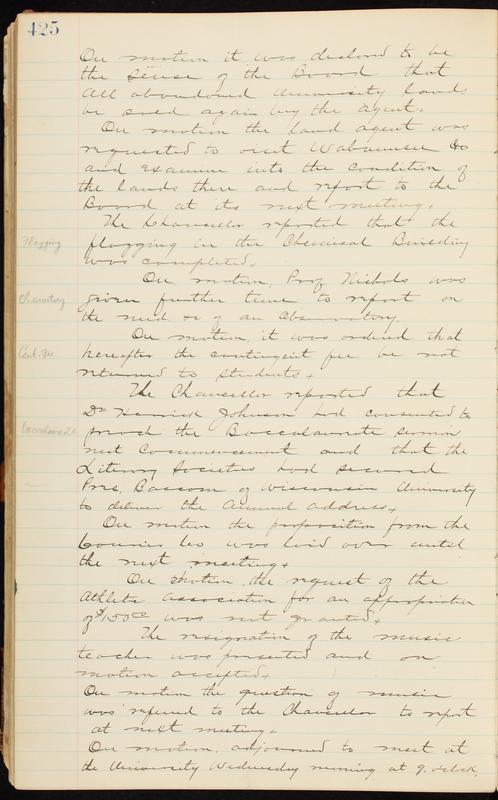 425
On motion it was declared to be
the sense of the Board that
all abandoned University lands
be sued again by the agent.
On motion the land agent was
requested to visit Wabaunsee Co
and examine into the condition of
the lands there and report to the
Board at its next meeting.
The Chancellor reported that the
Flagging
flagging in the Chemical Building
was completed.
On motion, Prof. Nichols was
Observatory
given further time to report on
the need &c of an Observatory.
On motion, it was ordered that
Cont. Fee
hereafter the contingent fee be not
returned to students.
The Chancellor reported that
Dr Herrick Johnson had consented to
Baccalaureate
preach the Baccalaureate sermon
next Commencement and that the
Literary Societies had secured
Pres. Bascom of Wisconsin University
to deliver the annual address.
On motion the proposition from the
Courier Co was laid over until
the next meeting.
On motion, the request of the
Athletic Association for an appropriation
of $150.00 was not granted.
The resignation of the music
teacher was presented and on
motion accepted.
On motion the question of music
was referred to the Chancellor to report
at next meeting.
On motion, adjourned to meet at
the University Wednesday morning at 9. oclock.